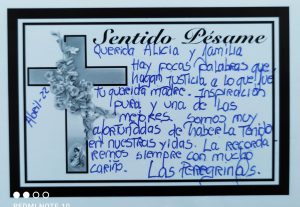 Sentido Pésame
Querida Alicia y familia
Hay pocas palabras que
hagan justicia a lo que fue
tu querida madre. Inspiración
pura y una de las
mejores. Somos muy
afortunadas de haberla tenido
en nuestras vidas. La recorda
remos siempre con mucho
cariño. Las Peregrinas.
Abril-22
REDMI NOTE 10